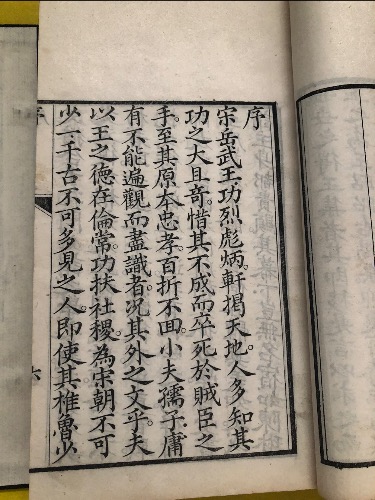 序
宗岳武王功烈彪炳軒揭天地人多知其
功之大且竒惜其不成而卒死於賊臣之
手至其原本忠孝百折不囬小夫孺子庸
有不能遍觀而盡識者况其外之文乎夫
以王之德在倫常功扶社稷為宋朝不可
少一千古不可多見之人即使其椎魯少
序
六